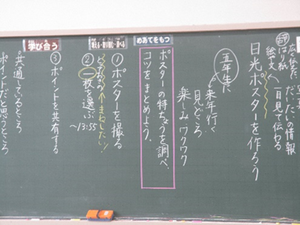 日光ポスターを作ろう
だいたいの情報
一目見て伝わる
五年生に
来年行く
見どころ
楽しみワクワク
めあてをもつ
ポスターの特ちょうを調べ、
コツをまとめよう。
①ポスターを撮る
②一枚を選ぶ
~13:55
学び合う
③ポイントを共有する
共通しているところ
ポイントだと思うところ